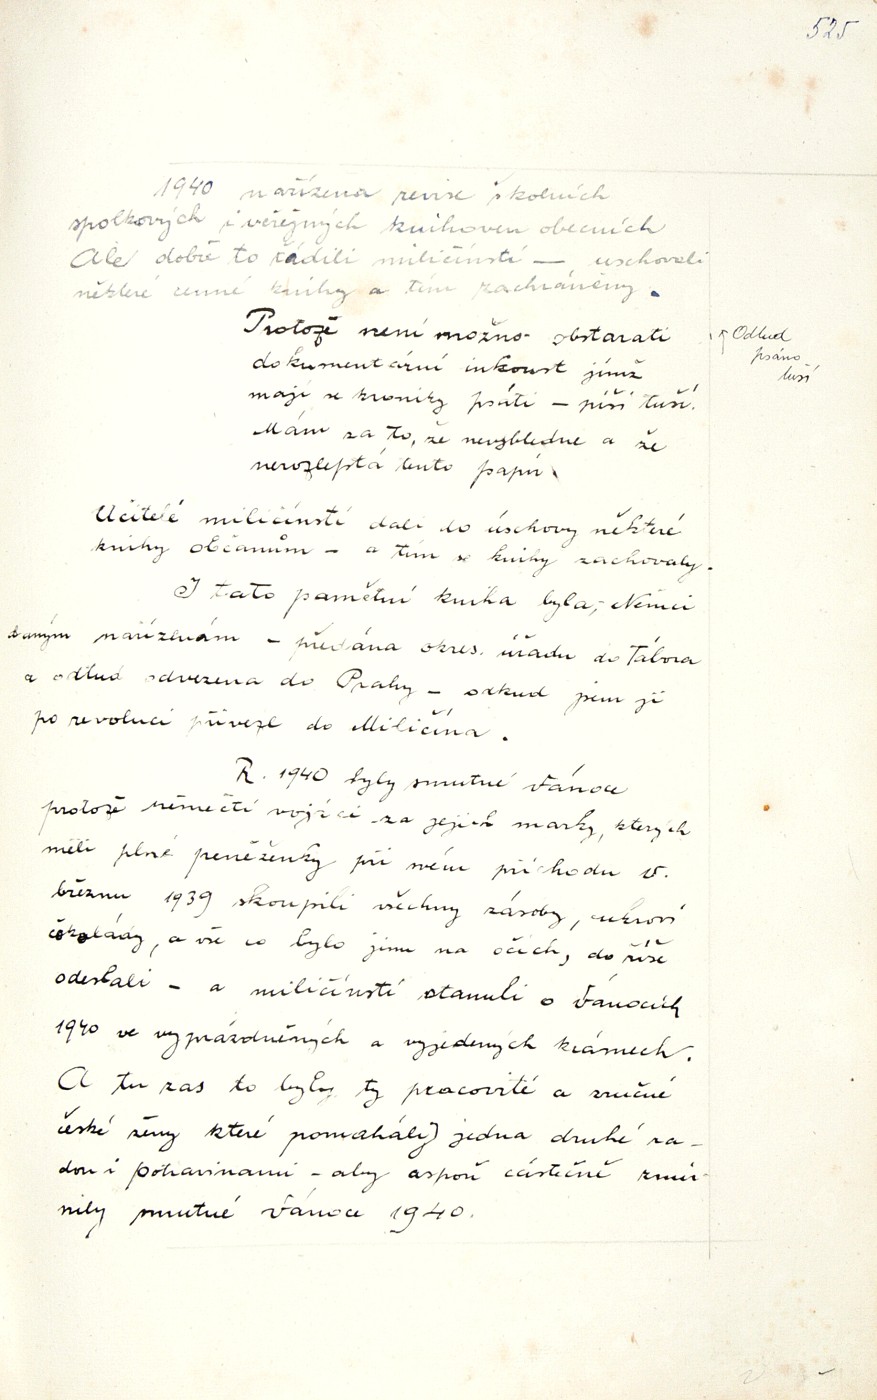 525
1940 nařízena revise školních
spolkových i veřejných knihoven obecních
Ale dobře to řádili miličínstí — uschovali
některé cenné knihy a tím zachráněny.
Protože není možno obstarati
dokumentární inkoust jímž
mají se kroniky psáti – píši tuší.
Mám za to, že nevybledne a že
nerozleptá tento papír
Odtud
psáno
tuší
Učitelé miličínstí dali do úschovy některé
knihy občanům – a tím se knihy zachovaly.
I tato pamětní kniha byla, Němci
daným nařízenám – předána okres. úřadu do Tábora
a odtud odvezena do Prahy – odkud jsem ji
po revoluci přivezl do Miličína.
R. 1940 byly smutné vánoce
protože němečtí vojáci za jejich marky, kterých
měli plné peněženky při svém příchodu v.
březnu 1939 skoupili všechny zásoby, cukroví
čokolády, a vše co bylo jim na očích, do říše
odeslali – a miličínstí stanuli o vánocích
1940 ve vyprázdněných a vyjedených krámech.
A tu zas to byly ty pracovité a zručné
české ženy které pomáhaly jedna druhé ra-
dou i potravinami – aby aspoň částečně zmír-
nily smutné vánoce 1940.